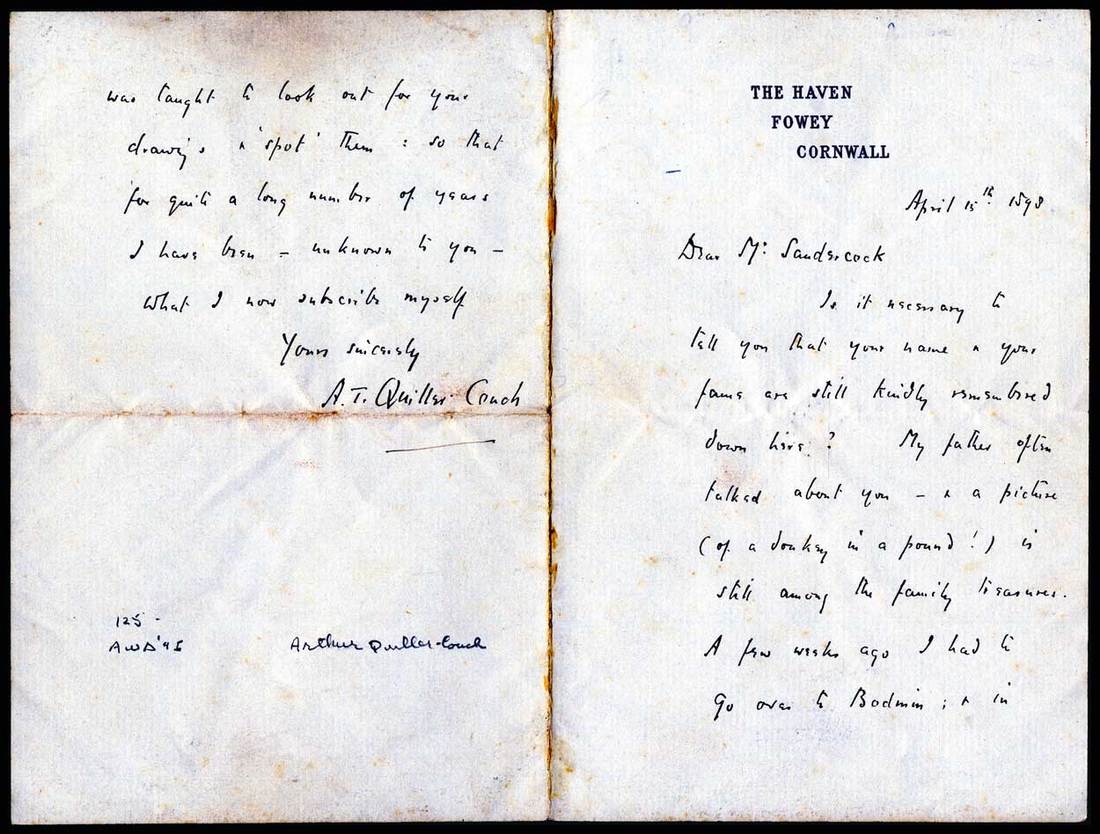 THE HAVEN
FOWEY
CORNWALL
April 15th. 1898.
Dear Mr. Sandercock
Is it necessary to
tell you that your name & your
fame are still kindly remembered
down here? My father often
talked about you – & a picture
(of a donkey in a pound!) is
still among the family treasures.
A few weeks ago I had to
go over to Bodmin; & in
was taught to look out for your
drawings & 'spot' them: so that
for quite a long number of years
I have been – unknown to you –
what I now subscribe myself
Yours sincerely
A. T. Quiller-Couch
125 -
Arthur Quiller-Couch